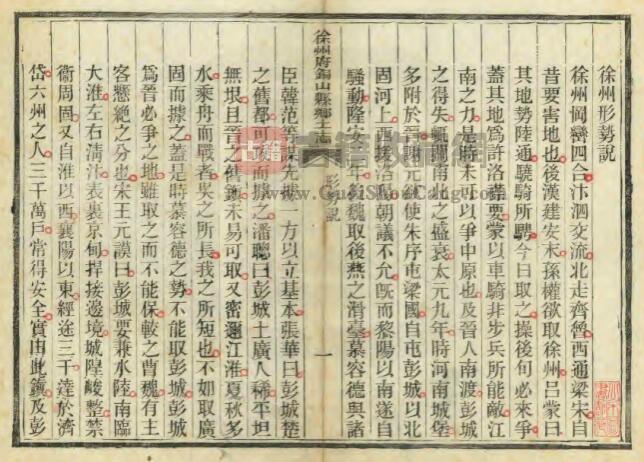 徐州形勢說
徐州岡巒四合汴泗交流北走齊魯西通梁宋自
昔要害地也後漢建安末孫權欲取徐州呂蒙曰
其地勢陸通驍騎所騁今日取之操後旬必來爭
蓋其地為許洛藩要蒙以車騎非步兵所能敵江
南之力是時未可以爭中原也及晉人南渡彭城
之得失輒關南北之盛衰太元九年時河南城堡
多附於晉謝元欲使朱序屯梁國自屯彭城以北
固河上西援洛陽朝議不允既而黎陽以南遂自
騷動隆安年魏取後燕之滑臺慕容德與諸
徐州府銅山縣鄉土志
形勢說
一
臣韓范等謀先據一方以立基本張華曰彭城楚
之舊都可攻而據之潘聰曰彭城土廣人稀平坦
無垠且晉之舊鎮未易可取又密邇江淮夏秋多
水乘舟而戰者吳之所長我之所短也不如取廣
固而據之蓋是時慕容德之勢不能取彭城彭城
為晉必爭之地雖取之而不能保較之曹魏有主
客懸絕之分也宋王元謨曰彭城要兼水陸南臨
大淮左右清汴表裏京甸捍接邊境城隍峻整禁
衞周固又自淮以西襄陽以東經途三千達於濟
岱六州之人三千萬戶常得安全實由此鎮及彭